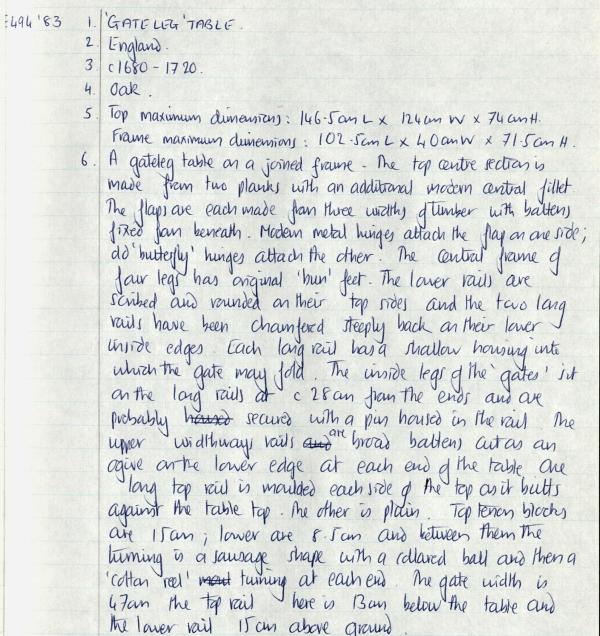 E494 '83 1. 'GATE LEG' TABLE.
2. England.
3 c1680 - 1720.
4. Oak.
5. Top maximum dimensions: 146.5cm L x 124cm W x 74cm H.
Frame maximum dimensions: 102.5cm L x 40cm W x 71.5cm H.
6. A gateleg table on a joined frame. The top centre section is
made from two planks with an additional modern central fillet
The flaps are each made from three widths of timber with battens
fixed from beneath. Modern metal hinges attach the flap on one side;
old 'butterfly' hinges attach the other. The central frame of
four legs has original 'bun' feet. The lower rails are
scribed and rounded on their top sides and the two long
rails have been chamfered steeply back on their lower
inside edges. Each long rail has a shallow housing into
which the gate may fold. The inside legs of the 'gates' sit
on the long rails at c 28cm from the ends and are
probably housed secured with a pin housed in the rail. The
upper widthways rails and are broad battens cut as an
ogive on the lower edge at each end of the table. One
long top rail is moulded each side of the top as it butts
against the table top. The other is plain. Top tenon blocks
are 15cm; lower are 8.5cm and between them the
turning is a sausage shape with a collared ball and then a
'cotton reel' turning at each end. The gate width is
47cm the top rail here is 13cm below the table and
the lower rail 15cm above ground.